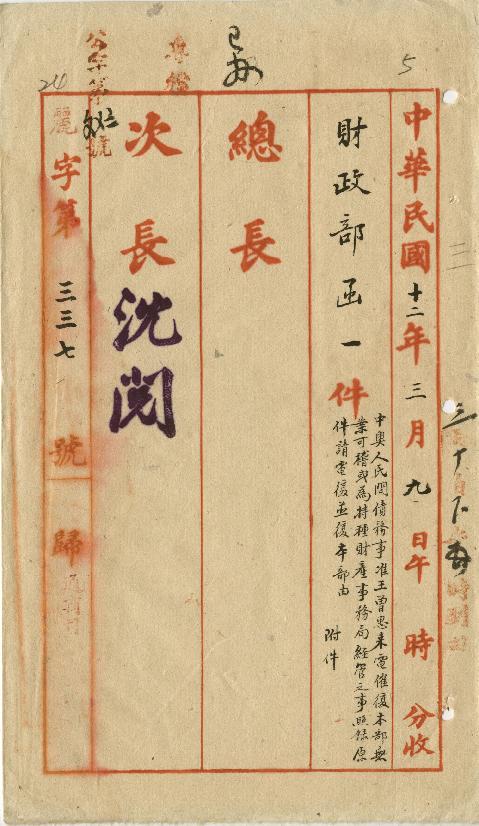 5
中華民國十二年三月九日午時分收
財政部函一件
中奧人民間債務事准王曾思來電催復本部無
業可稽或為特種財產事務局經管之事照錄原
件請電復並復本部由
附件
總長
次長
沈閱
麗字第三三七號歸
公字第
號
24